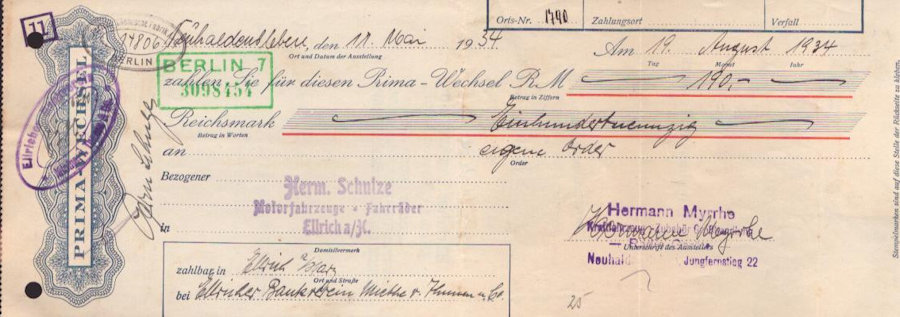 11
Orts-Nr. 1790 Zahlungsort Verfall
14806
BERLIN
Neuhaldensleben, den 11. Mai 1934 Am 19. August 1934
Ort und Datum der Ausstellung Tag Monat Jahr
BERLIN 7
3098454
zahlen Sie für diesen Prima-Wechsel RM 190,-
Betrag in Ziffern
Reichsmark Einhundertneunzig
Betrag in Worten
an eigene Order
Order
Bezogener
Herm. Schulze
Motorfahrzeuge - Fahrräder
in Ellrich a/H.
Hermann Myrrhe
Hermann Myrrhe
Unterschrift des Ausstellers
Neuhald Jungfernstieg 22
Domizilvermerk
zahlbar in Ellrich a/Harz
Ort und Straße
bei Ellricher Bankverein
25
PRIMA-WECHSEL
Ellrich
Stempelmarken sind auf diese Stelle der Rückseite zu kleben.